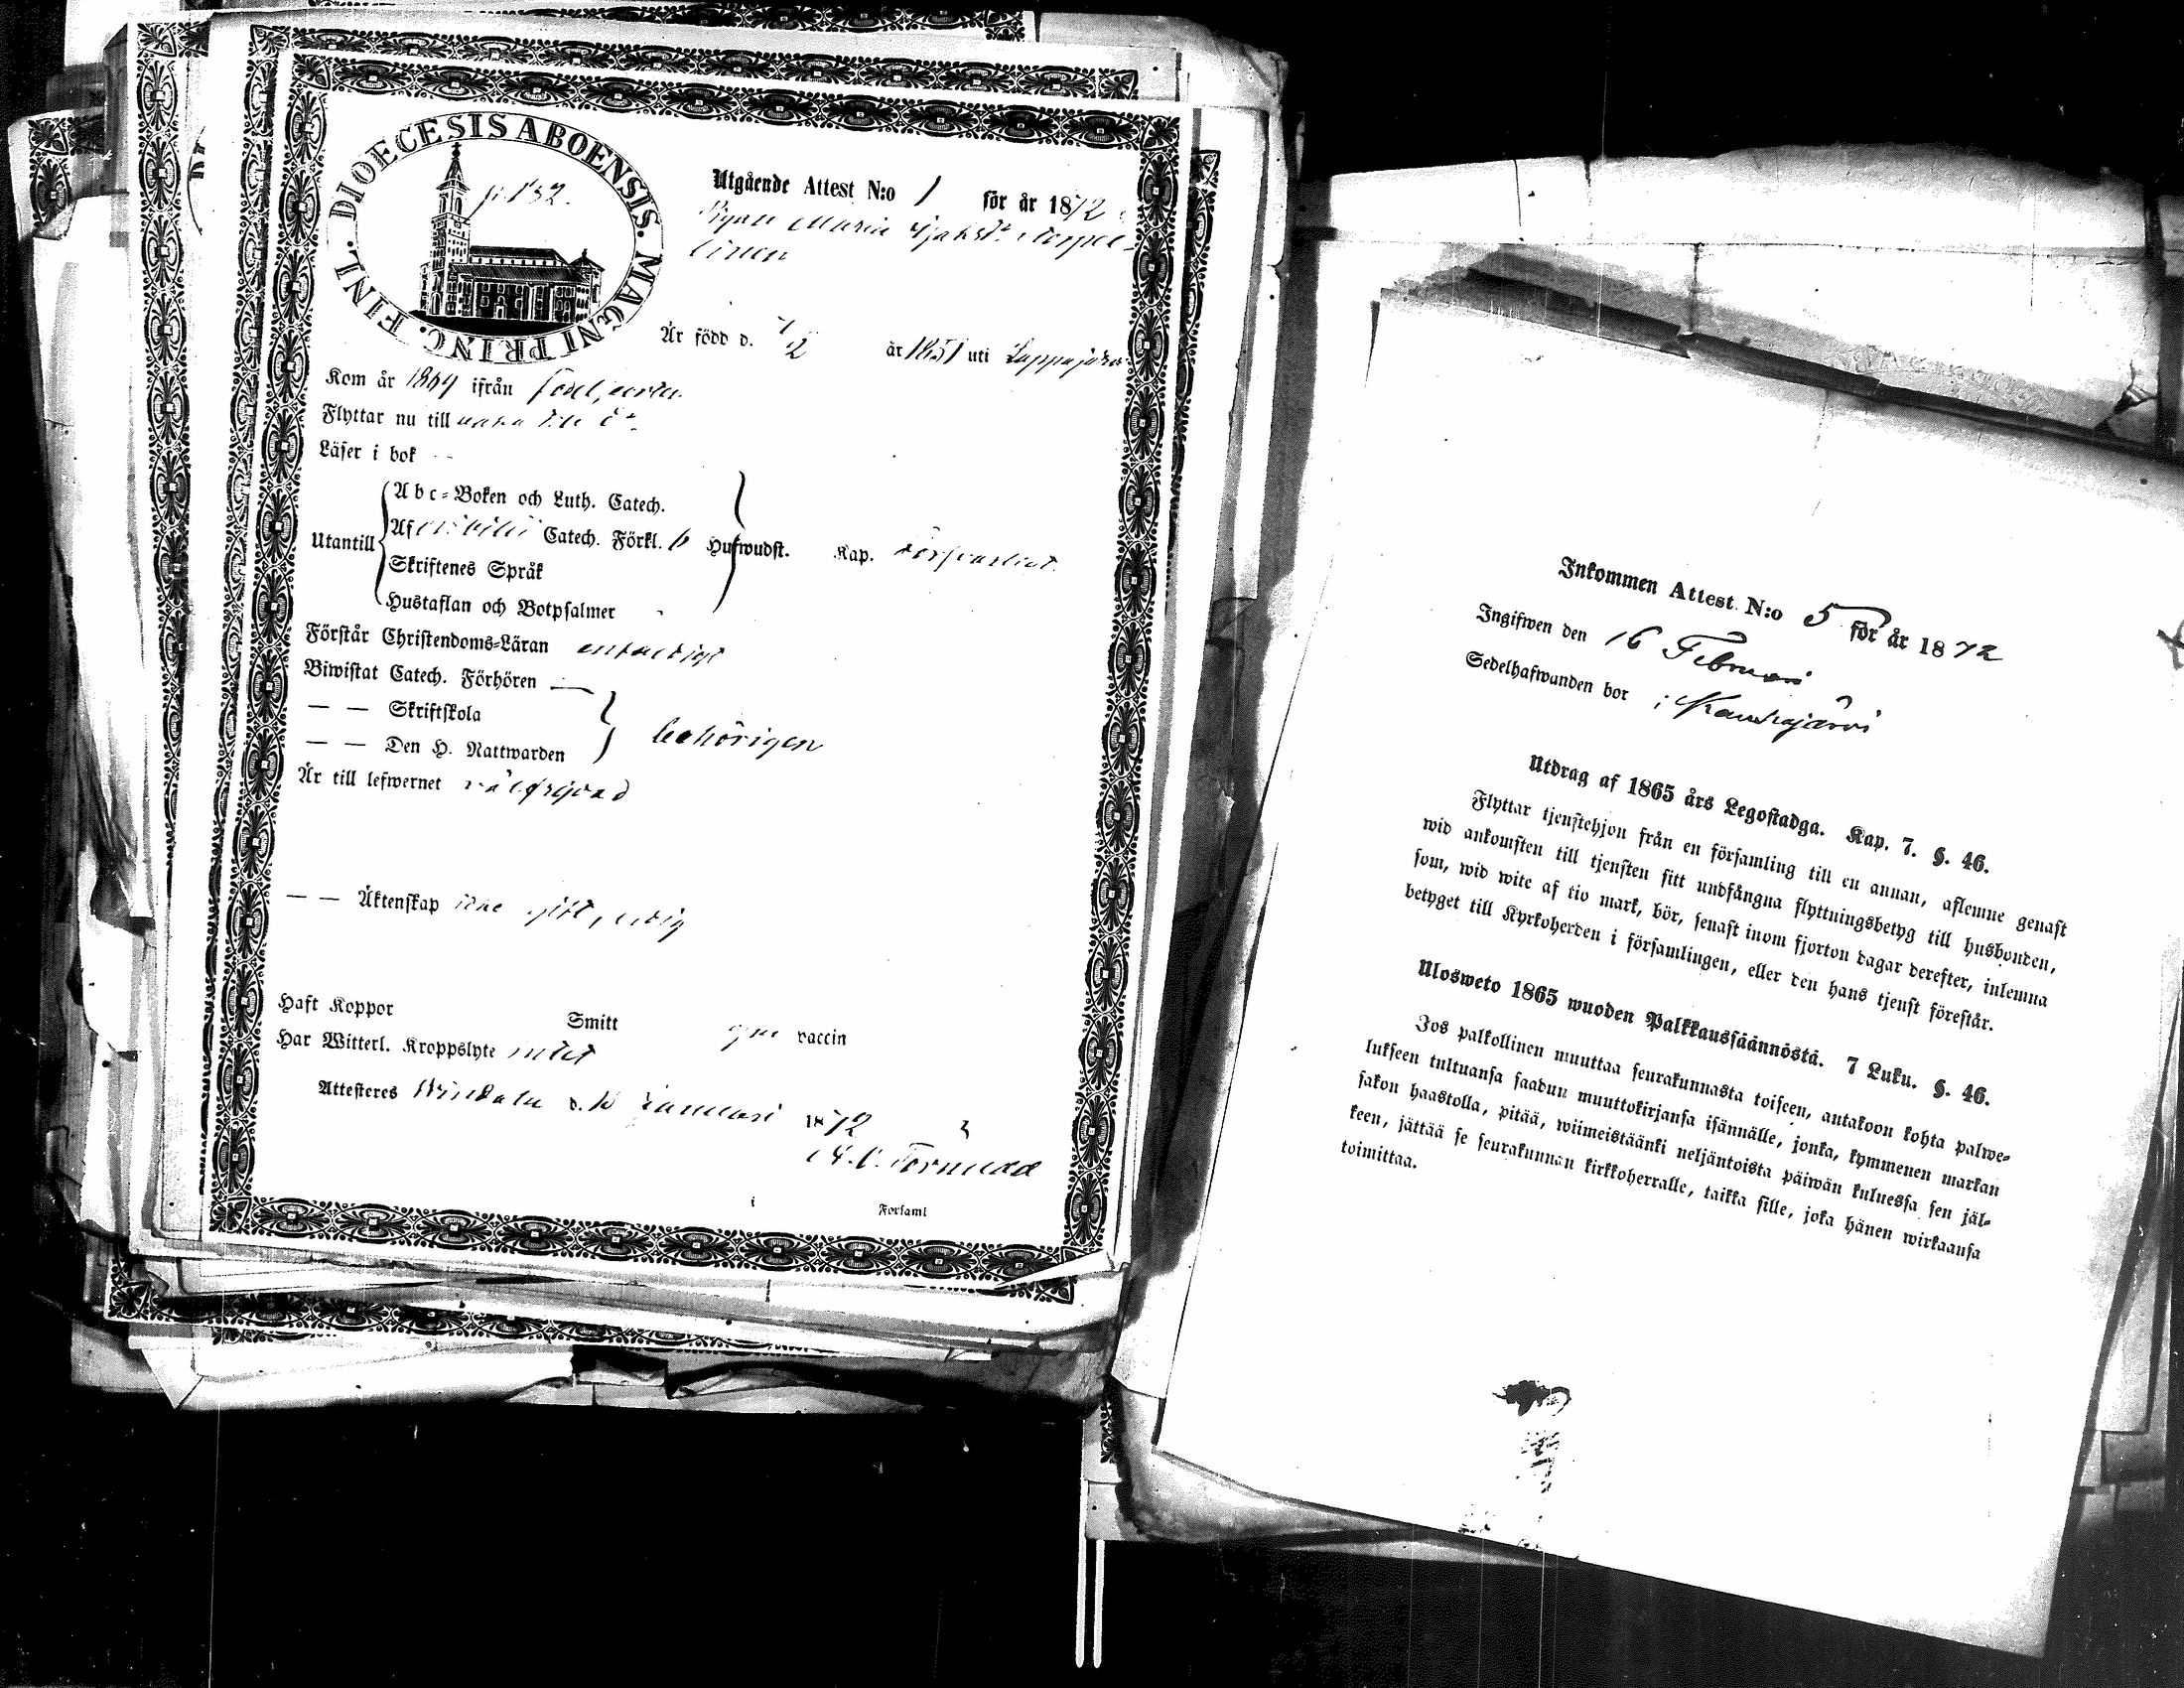 DIOECESIS ABOENSIS. MAGNI PRINC. FINL.
p. 132.
Utgående Attest N:o 1 för år 1872
Pigan Maria
linen
Är född d. /2 år 1851 uti Lappajärvi
Kom år 1869 ifrån födel. orten
Flyttar nu till
Läser i bok
Utantill
Abc-Boken och Luth. Catech.
Af Catech. Förkl. 6 Hufwudst. Kap. försvarligt.
Skriftenes Språk
Hustaflan och Botpsalmer
Förstår Christendoms-Läran enfaldigt
Biwistat Catech. Förhören
— — Skriftskola
— — Den H. Nattwarden
behörigen
Är till lefwernet välfrejdad
— — Äktenskap icke gift, ledig
Haft Koppor Smitt gm vaccin
Har Witterl. Kroppslyte intet
Attesteres Windala d. Januari 1872
i Forsaml
Inkommen Attest N:o 5 för år 1872
Ingifwen den 16 Februari
Sedelhafwanden bor i Kauhajärvi
Utdrag af 1865 års Legostadga. Kap. 7. §. 46.
Flyttar tjenstehjon från en församling till en annan, aflemne genast
wid ankomsten till tjensten sitt undfångna flyttningsbetyg till husbonden,
som, wid wite af tio mark, bör, senast inom fjorton dagar derefter, inlemna
betyget till Kyrkoherden i församlingen, eller den hans tjenst förestår.
Ulosweto 1865 wuoden Palkkaussäännöstä. 7 Luku. §. 46.
Jos palkollinen muuttaa seurakunnasta toiseen, antakoon kohta palwe-
lukseen tultuansa saadun muuttokirjansa isännälle, jonka, kymmenen markan
sakon haastolla, pitää, wiimeistäänki neljäntoista päiwän kuluessa sen jäl-
keen, jättää se seurakunnan kirkkoherralle, taikka sille, joka hänen wirkaansa
toimittaa.